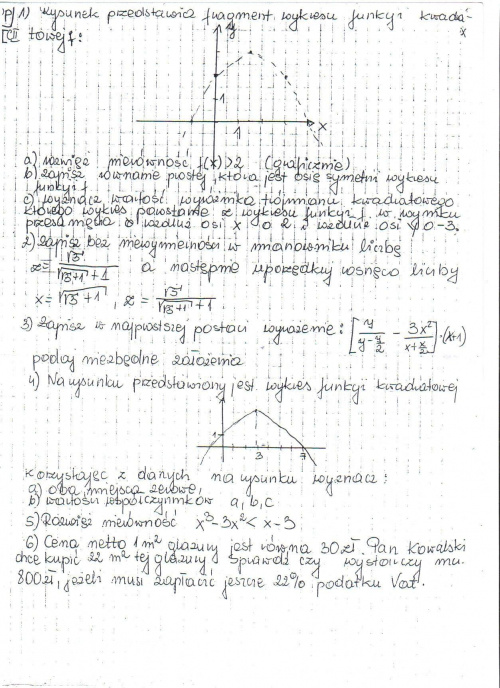 1) Rysunek przedstawia fragment wykresu funkcji kwadra-
towej f:
y
1
1
x
a) rozwiąż nierówność f(x)>2 (graficznie)
b) zapisz równanie prostej, która jest osią symetrii wykresu
funkcji f
c) wyznacz wartość wyróżnika trójmianu kwadratowego
którego wykres powstanie z wykresu funkcji f w wyniku
przesunięcia o wzdłuż osi x o 2 i wzdłuż osi y o -3.
2) Zapisz bez niewymierności w mianowniku liczbę
z = √3 / (√(√3+1) + 1) a następnie uporządkuj rosnąco liczby
x = √(√3+1) , z = √3 / (√(√3+1) + 1)
3) Zapisz w najprostszej postaci wyrażenie: [y / (y - y/2) - 3x² / (x + x/2)] · (x+1)
podaj niezbędne założenia
4) Na rysunku przedstawiony jest wykres funkcji kwadratowej
1
3
7
Korzystając z danych na rysunku wyznacz:
a) oba miejsca zerowe,
b) wartości współczynników a, b, c
5) Rozwiąż nierówność x³ - 3x² < x - 3
6) Cena netto 1 m² glazury jest równa 30 zł. Pan Kowalski
chce kupić 22 m² tej glazury. Sprawdź czy wystarczy mu
800 zł, jeżeli musi zapłacić jeszcze 22% podatku Vat.